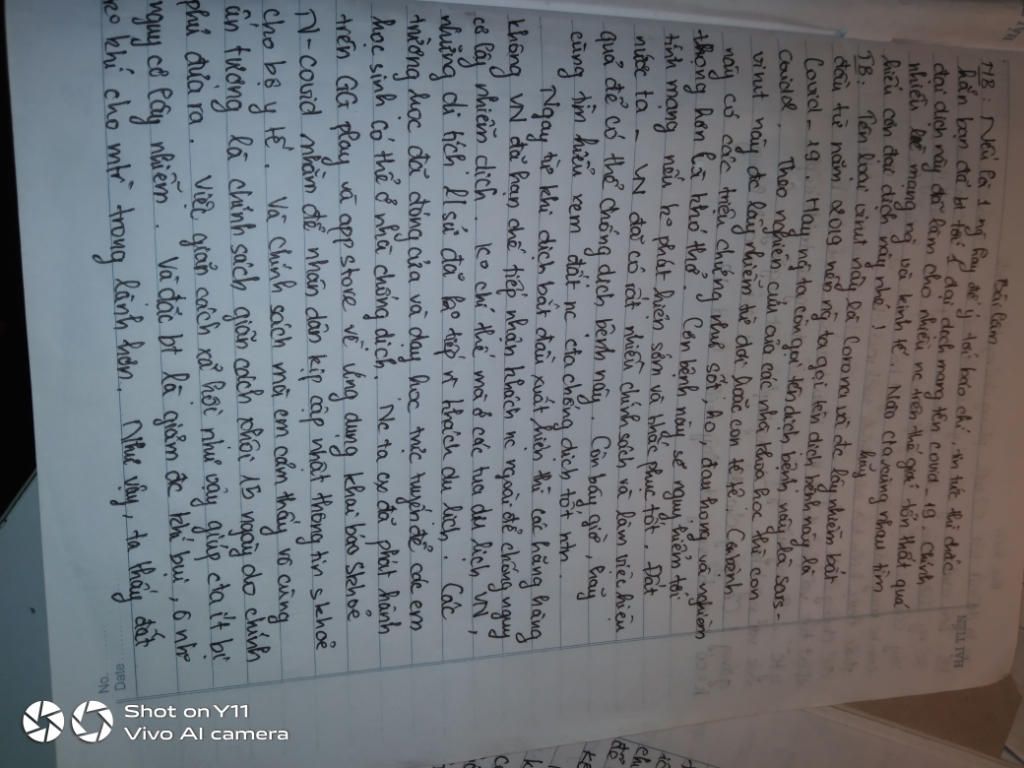 Bài làm
MB: Nếu là 1 ng hay để ý tới báo chí, tin tức thì chắc
hẳn bạn để bt tới 1 đại dịch mang tên covid-19. Chính
đại dịch này đã làm cho nhiều nc trên thế giới tổn thất quá
nhiều về mạng ng và kinh tế. Nào cta cùng nhau tìm
hiểu căn đại dịch này nhé!
TB: Tên loài virut này là Corona và đc lây nhiễm bắt
đầu từ năm 2019 nên ng ta gọi tên dịch bệnh này là
Covid-19. Hay ng ta còn gọi tên dịch bệnh này là sars-
covid. Theo nghiên cứu của các nhà khoa học thì con
virut này đc lây nhiễm từ dơi hoặc con tê tê. Cănbệnh
này có các triệu chứng như sốt, ho, đau họng và nghiêm
trọng hơn là khó thở. Căn bệnh này sẽ nguy hiểm tới
tính mạng nếu ko phát hiện sớm và khắc phục tốt. Đất
nước ta - VN đã có rất nhiều chính sách và làm việc hiệu
quả để có thể chống dịch bệnh này. Còn bây giờ, hãy
cùng tìm hiểu xem đất nc cta chống dịch tốt ntn.
Ngay từ khi dịch bắt đầu xuất hiện thì các hãng hàng
không VN đã hạn chế tiếp nhận khách nc ngoài để chống nguy
cơ lây nhiễm dịch. Ko chỉ thế mà ở các tua du lịch VN,
những di tích lịsử đã ko tiếp n khách du lịch. Các
trường học đã đóng cửa và dạy học trực tuyến để các em
học sinh có thể ở nhà chống dịch. Nc ta cx đã phát hành
trên GG play và app store về ứng dụng khai báo skhoẻ
N-covid nhằm để nhân dân kịp cập nhật thông tin skhoẻ
cho bộ y tế. Và chính sách mà em cảm thấy vô cùng
ấn tượng là chính sách giãn cách xhội 15 ngày do chính
phủ đưa ra. Việc giãn cách xã hội như vậy giúp cta ít bị
nguy cơ lây nhiễm. Và đặc bt là giảm đc khí bụi, ô nhiễm
ko khí cho mtr trong lành hơn. Như vậy, ta thấy đất
No.
Date
Shot on Y11
Vivo AI camera